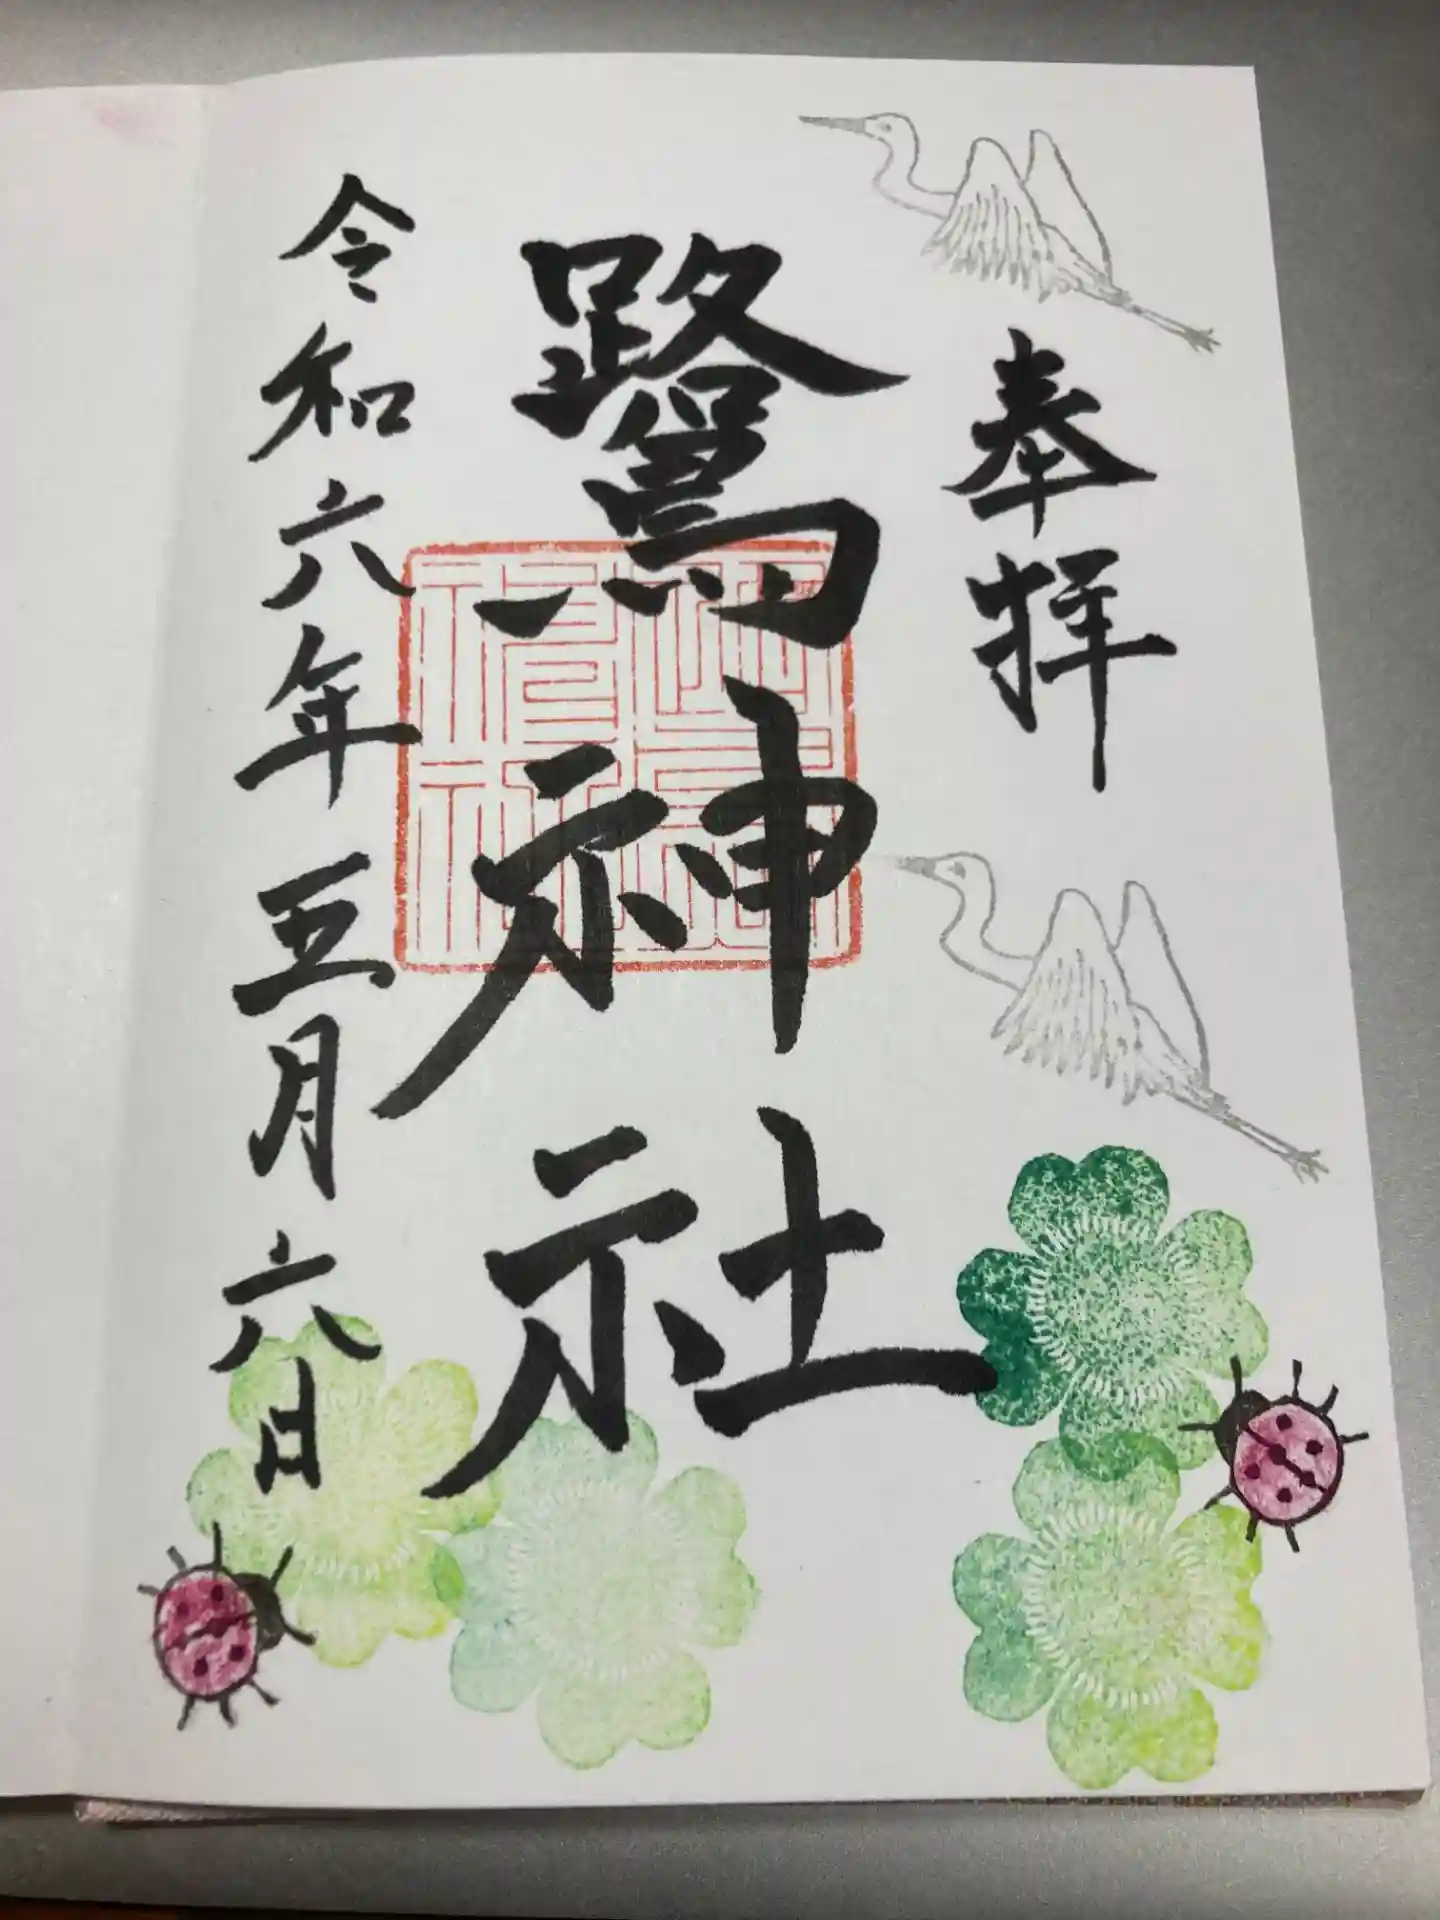 奉拝
鷺神社
令和六年五月六日